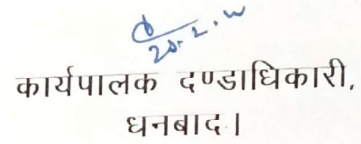 20.2.
कार्यपालक दण्डाधिकारी,
धनबाद।